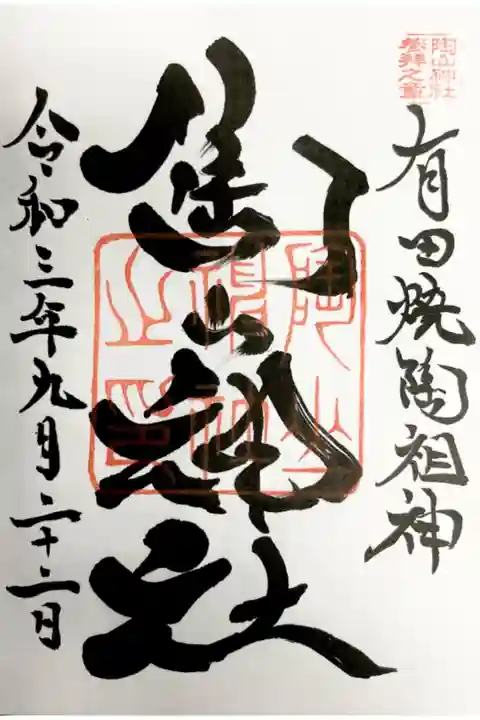 陶山神社
参拝之章
有田焼陶祖神
陶山神社
陶山神社之印
令和三年九月二十二日